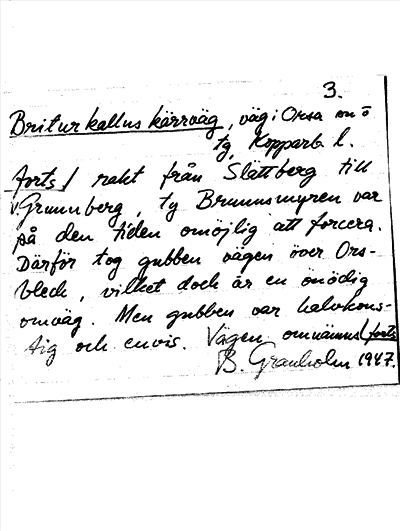 3.
Briturkallus kärrväg, väg i Orsa sn ö
tg, Kopparb. l.
forts/ rakt från Slättberg till
v. Grunnberg, ty Brunnsmyren var
på den tiden omöjlig att forcera.
Därför tog gubben vägen över Ors-
bleck, vilket dock är en onödig
omväg. Men gubben var halvkons-
tig och envis. Vägen omnämns/forts
B. Granholm 1947.